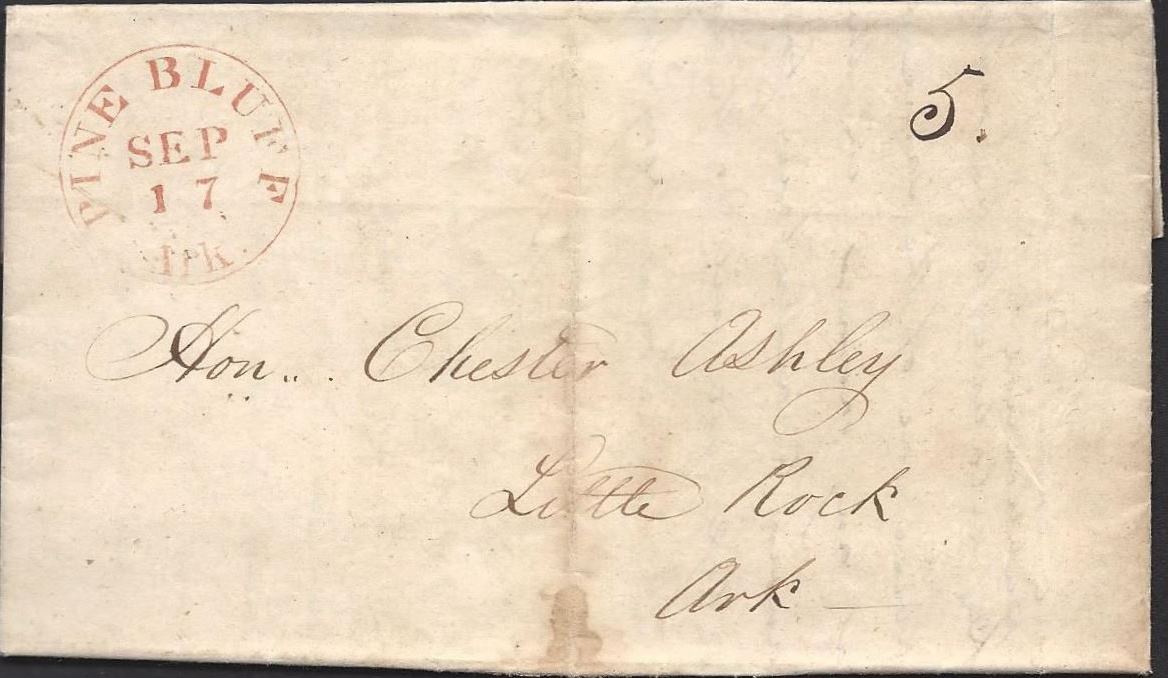 PINE BLUFF
SEP
17
Ark.
5.
Hon.. . Chester Ashley
Little Rock
Ark —